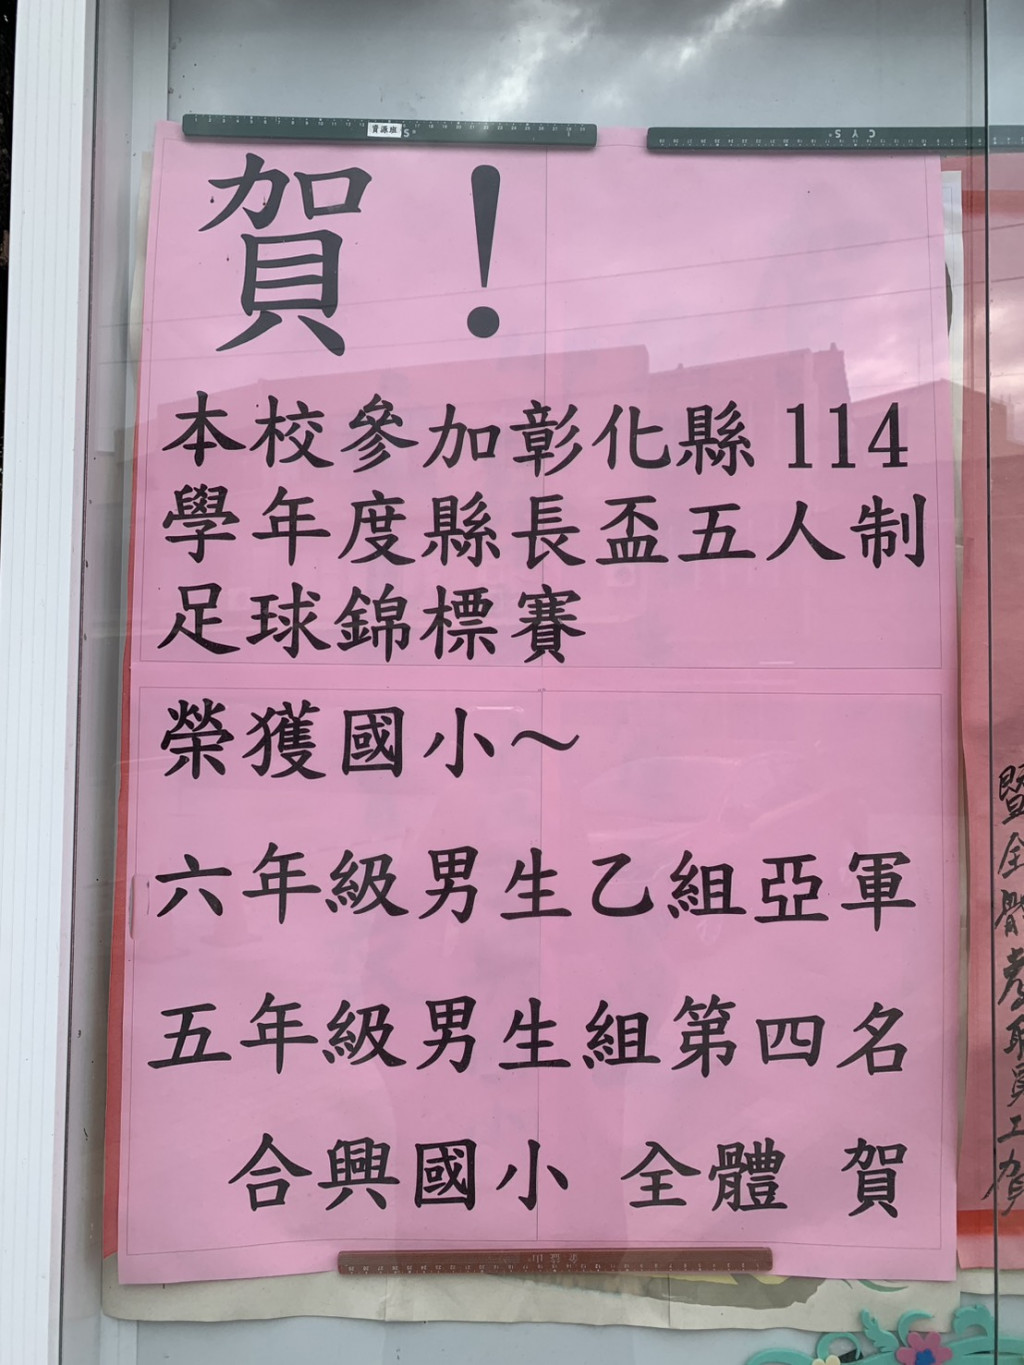 資源班
CYS
賀！
本校參加彰化縣114
學年度縣長盃五人制
足球錦標賽
榮獲國小～
六年級男生乙組亞軍
五年級男生組第四名
合興國小 全體 賀
暨全體教職員工賀